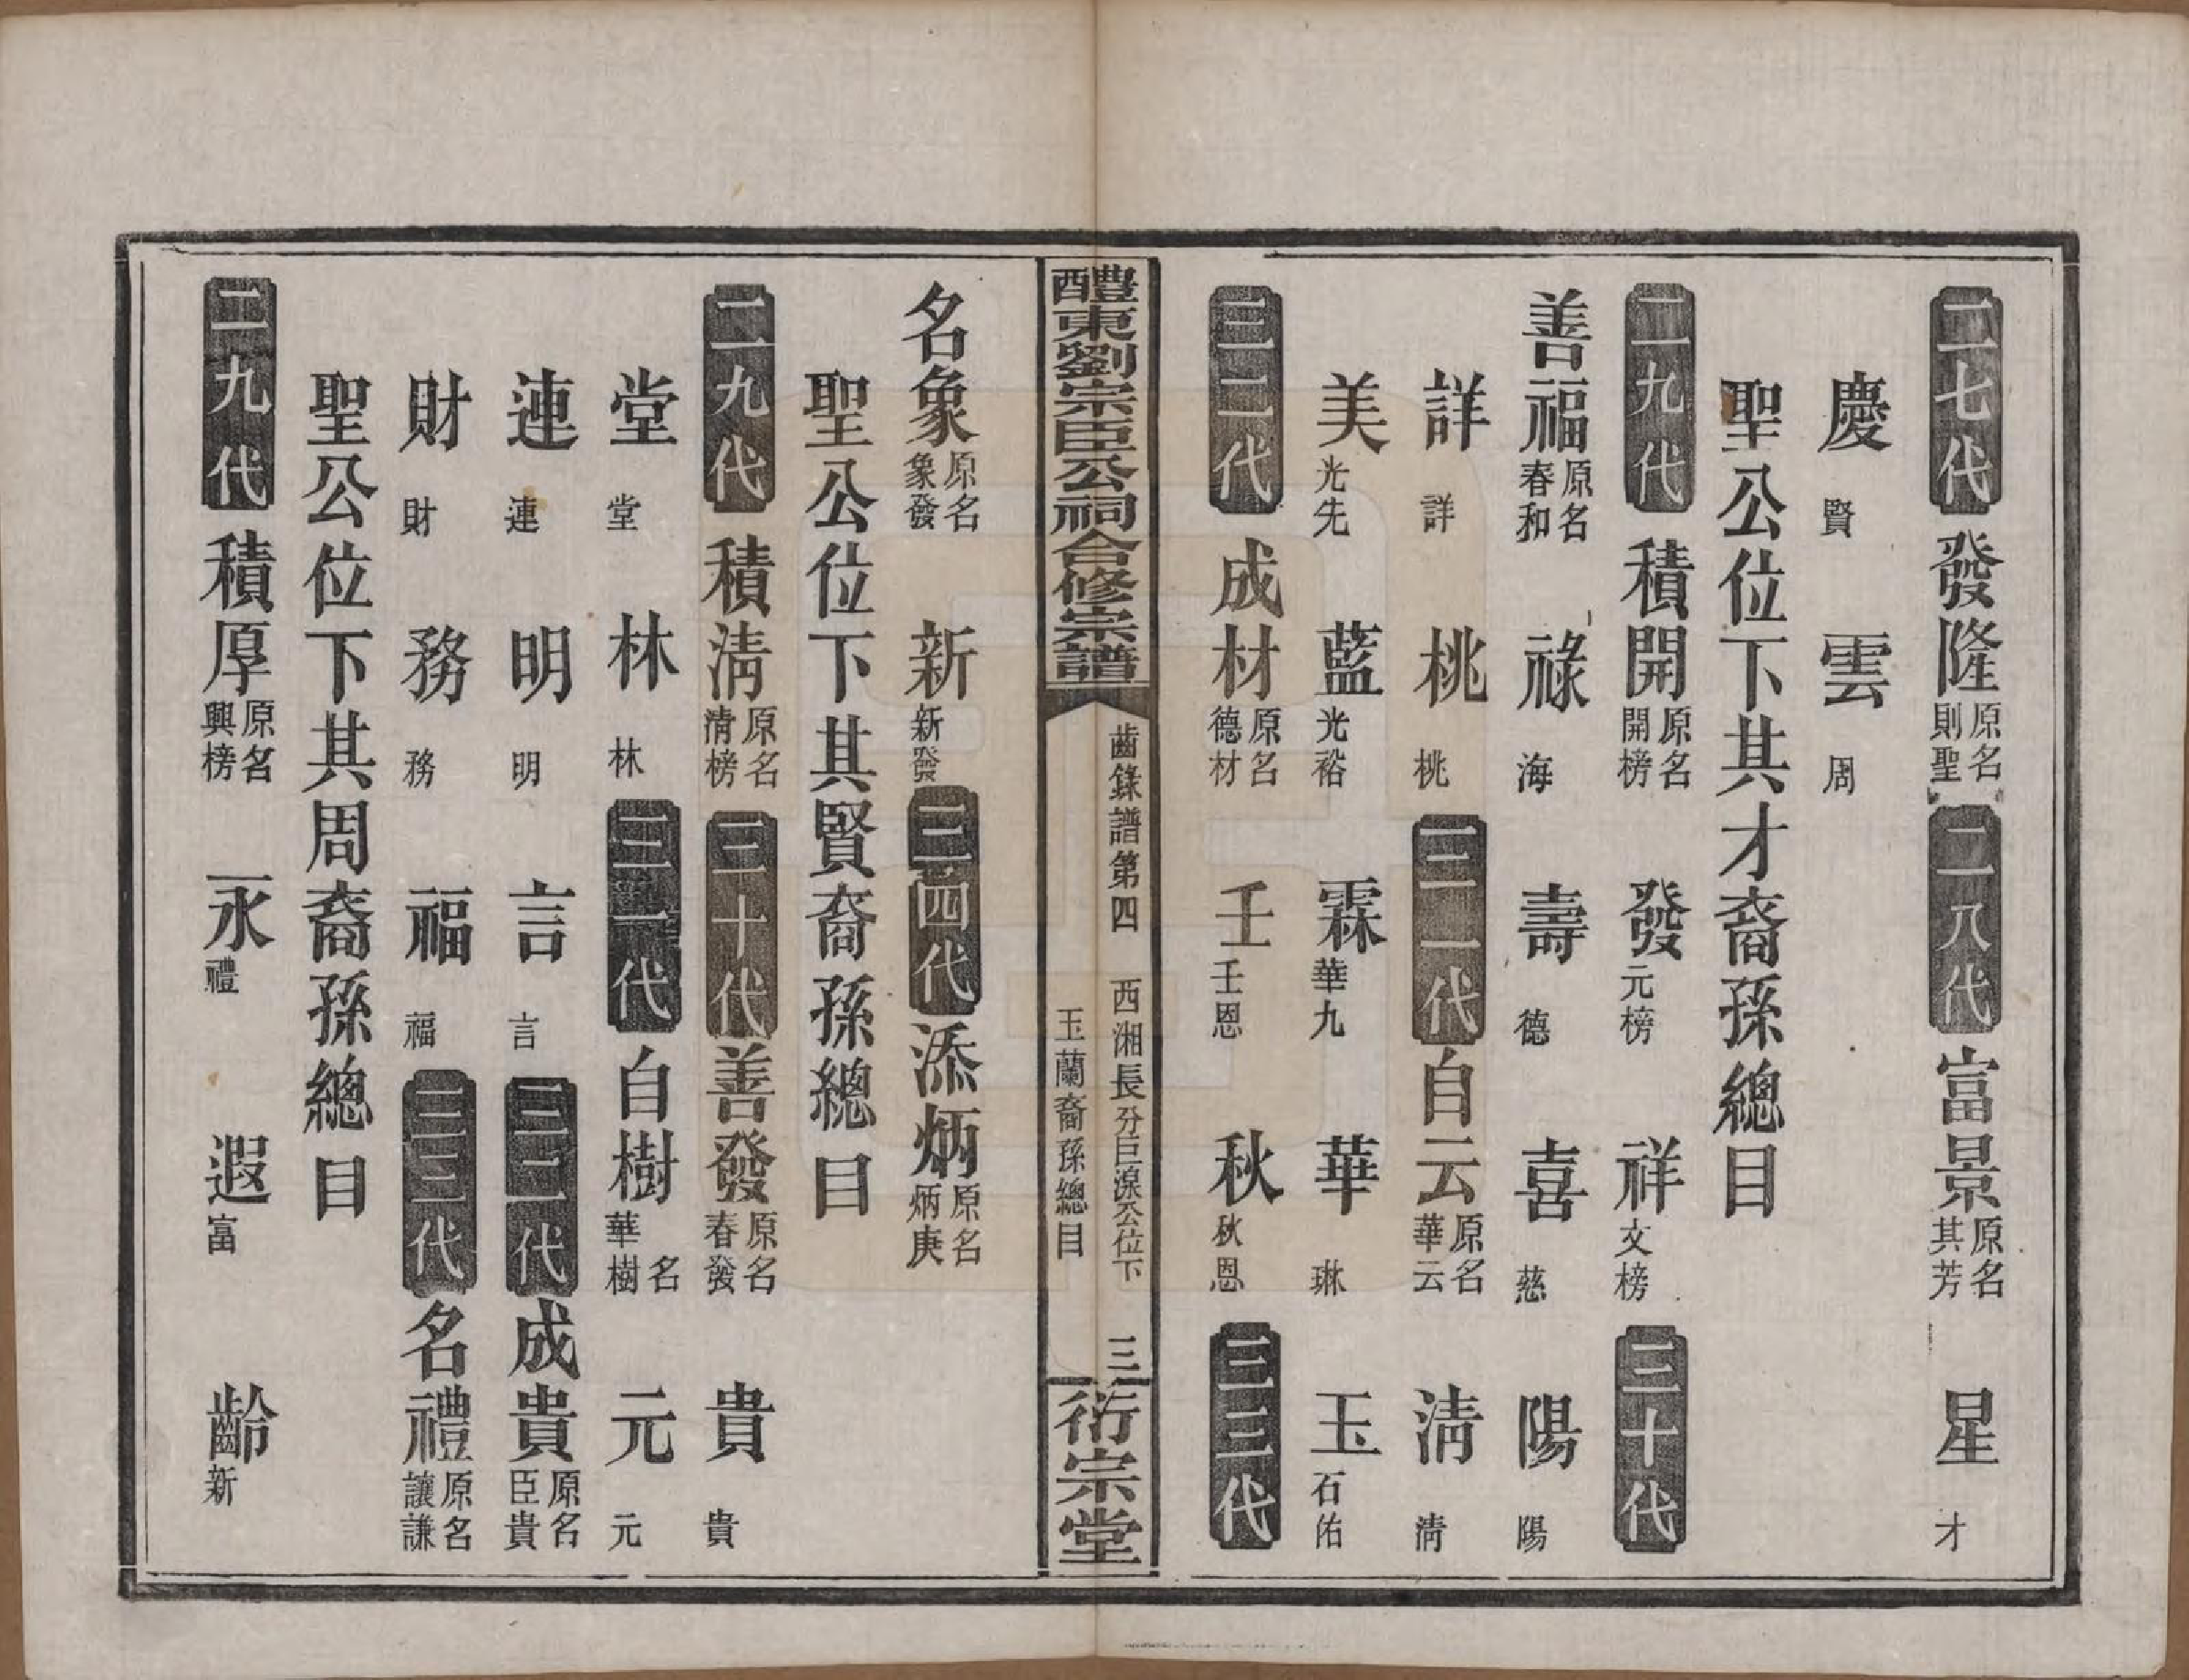 二七代 發隆 原名則聖 二八代 富景 原名其芳 星 才
慶 賢 雲 周
聖公位下其才裔孫總目
二九代 積開 原名開榜 發 元榜 祥 文榜 三十代
善福 原名春和 祿 海 壽 德 喜 慈 陽 陽
詳 詳 桃 桃 三一代 自云 原名華云 清 清
美 光先 藍 光裕 霖 華九 華 琳 玉 石佑
三二代 成材 原名德材 壬 壬恩 秋 秋恩 三三代
醴東劉宗臣公祠合修宗譜 齒錄譜第四 西湘長分巨湶公位下 玉蘭裔孫總目 三 衍宗堂
名象 原名象發 新 新發 三四代 添炳 原名炳庚
聖公位下其賢裔孫總目
二九代 積清 原名清榜 三十代 善發 原名春發 貴 貴
堂 堂 林 林 三一代 自樹 名華樹 元 元
連 連 明 明 言 言 三二代 成貴 原名臣貴
財 財 務 務 福 福 三三代 名禮 原名讓謙
聖公位下其周裔孫總目
二九代 積厚 原名興榜 永 禮 遐 富 齡 新